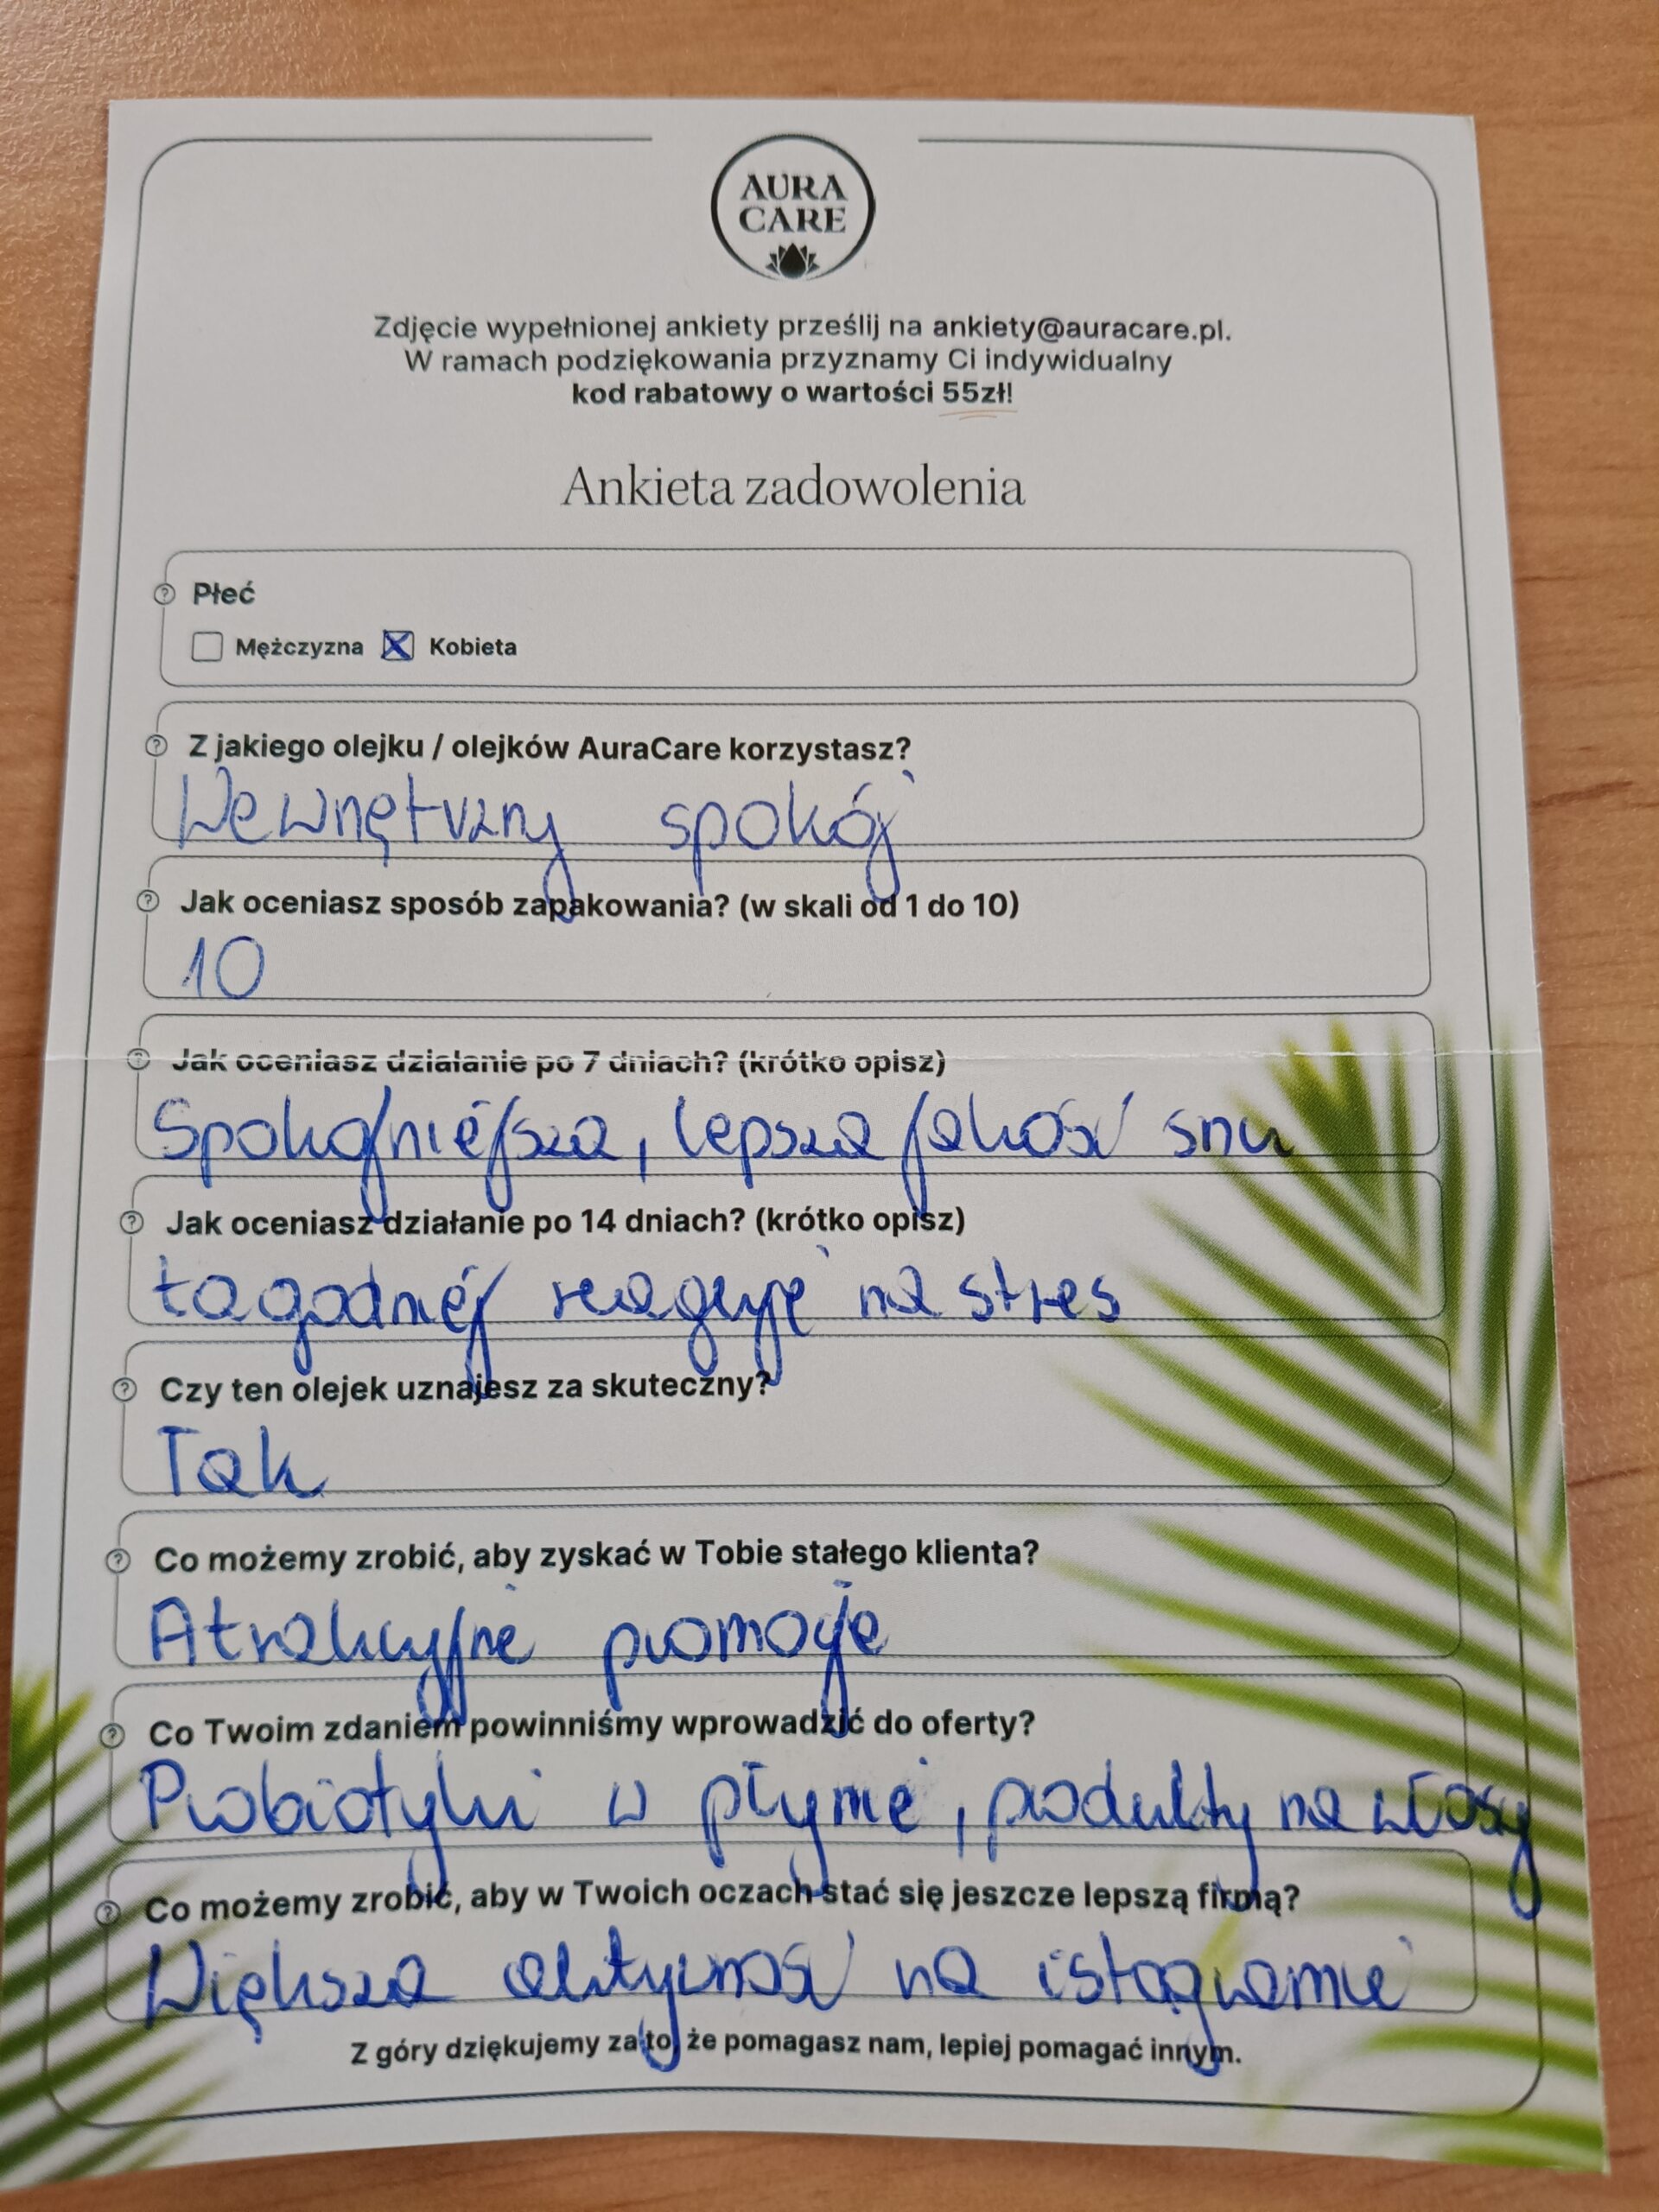 AURA
CARE
Zdjęcie wypełnionej ankiety prześlij na ankiety@auracare.pl.
W ramach podziękowania przyznamy Ci indywidualny
kod rabatowy o wartości 55zł!
Ankieta zadowolenia
Płeć
Mężczyzna Kobieta
Z jakiego olejku / olejków AuraCare korzystasz?
Wewnętrzny spokój
Jak oceniasz sposób zapakowania? (w skali od 1 do 10)
10
Jak oceniasz działanie po 7 dniach? (krótko opisz)
Spokojniejsza, lepsza jakość snu
Jak oceniasz działanie po 14 dniach? (krótko opisz)
Łagodniej reaguję na stres
Czy ten olejek uznajesz za skuteczny?
Tak
Co możemy zrobić, aby zyskać w Tobie stałego klienta?
Atrakcyjne promocje
Co Twoim zdaniem powinniśmy wprowadzić do oferty?
Probiotyki w płynie, produkty na włosy
Co możemy zrobić, aby w Twoich oczach stać się jeszcze lepszą firmą?
Większa aktywność na istagramie
Z góry dziękujemy za to, że pomagasz nam, lepiej pomagać innym.